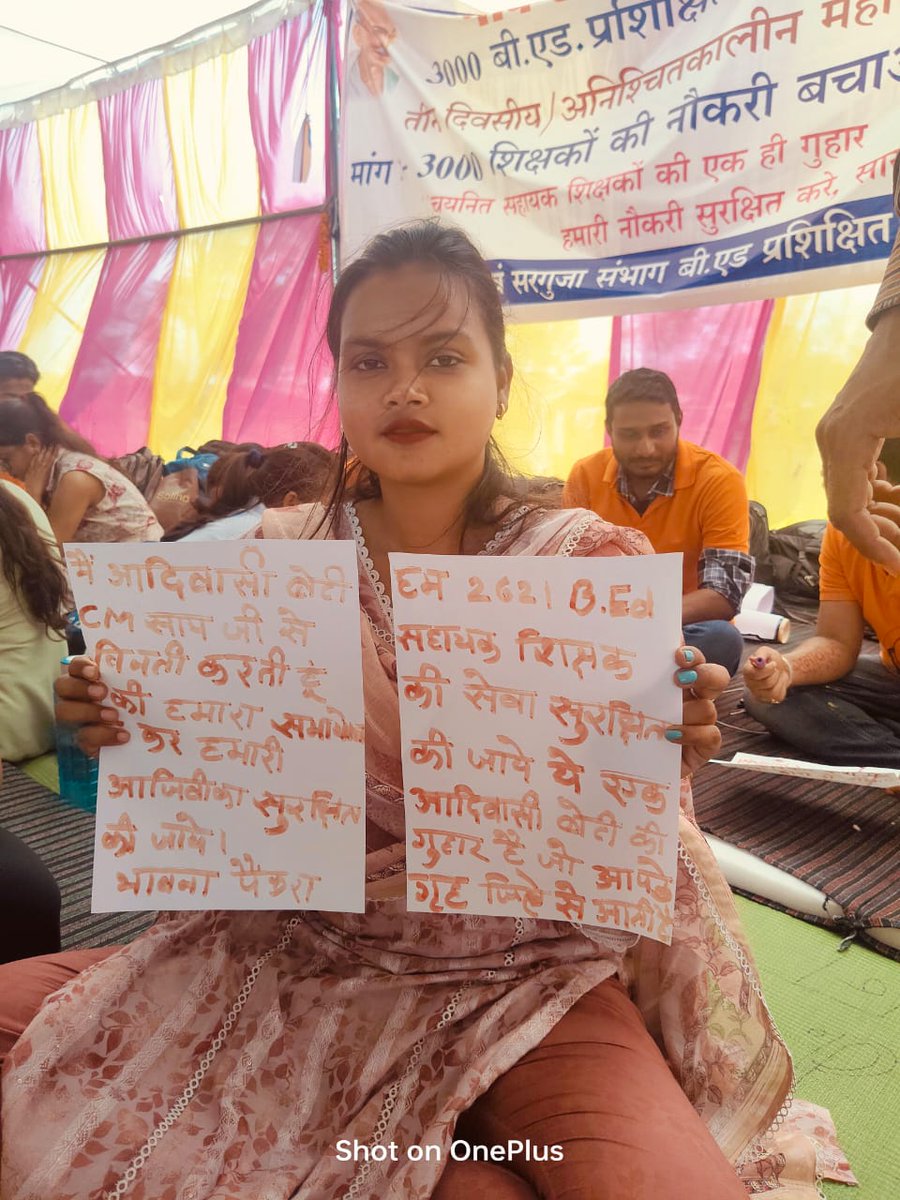 3000 बी.एड. प्रशिक्षि
तीन दिवसीय/अनिश्चितकालीन महा
मांग : 3000 शिक्षकों की नौकरी बचाओ
चयनित सहायक शिक्षकों की एक ही गुहार
हमारी नौकरी सुरक्षित करे, सा
सरगुजा संभाग बी.एड प्रशिक्षित
मैं आदिवासी बेटी
CM साय जी से
विनती करती हूं
की हमारा समायोजन
कर हमारी
आजिवीका सुरक्षित
की जाये।
भावना पैकरा
हम 2621 B.Ed
सहायक शिक्षक
की सेवा सुरक्षित
की जाये ये एक
आदिवासी बेटी की
गुहार है जो आपके
गृह जिले से आती है
Shot on OnePlus